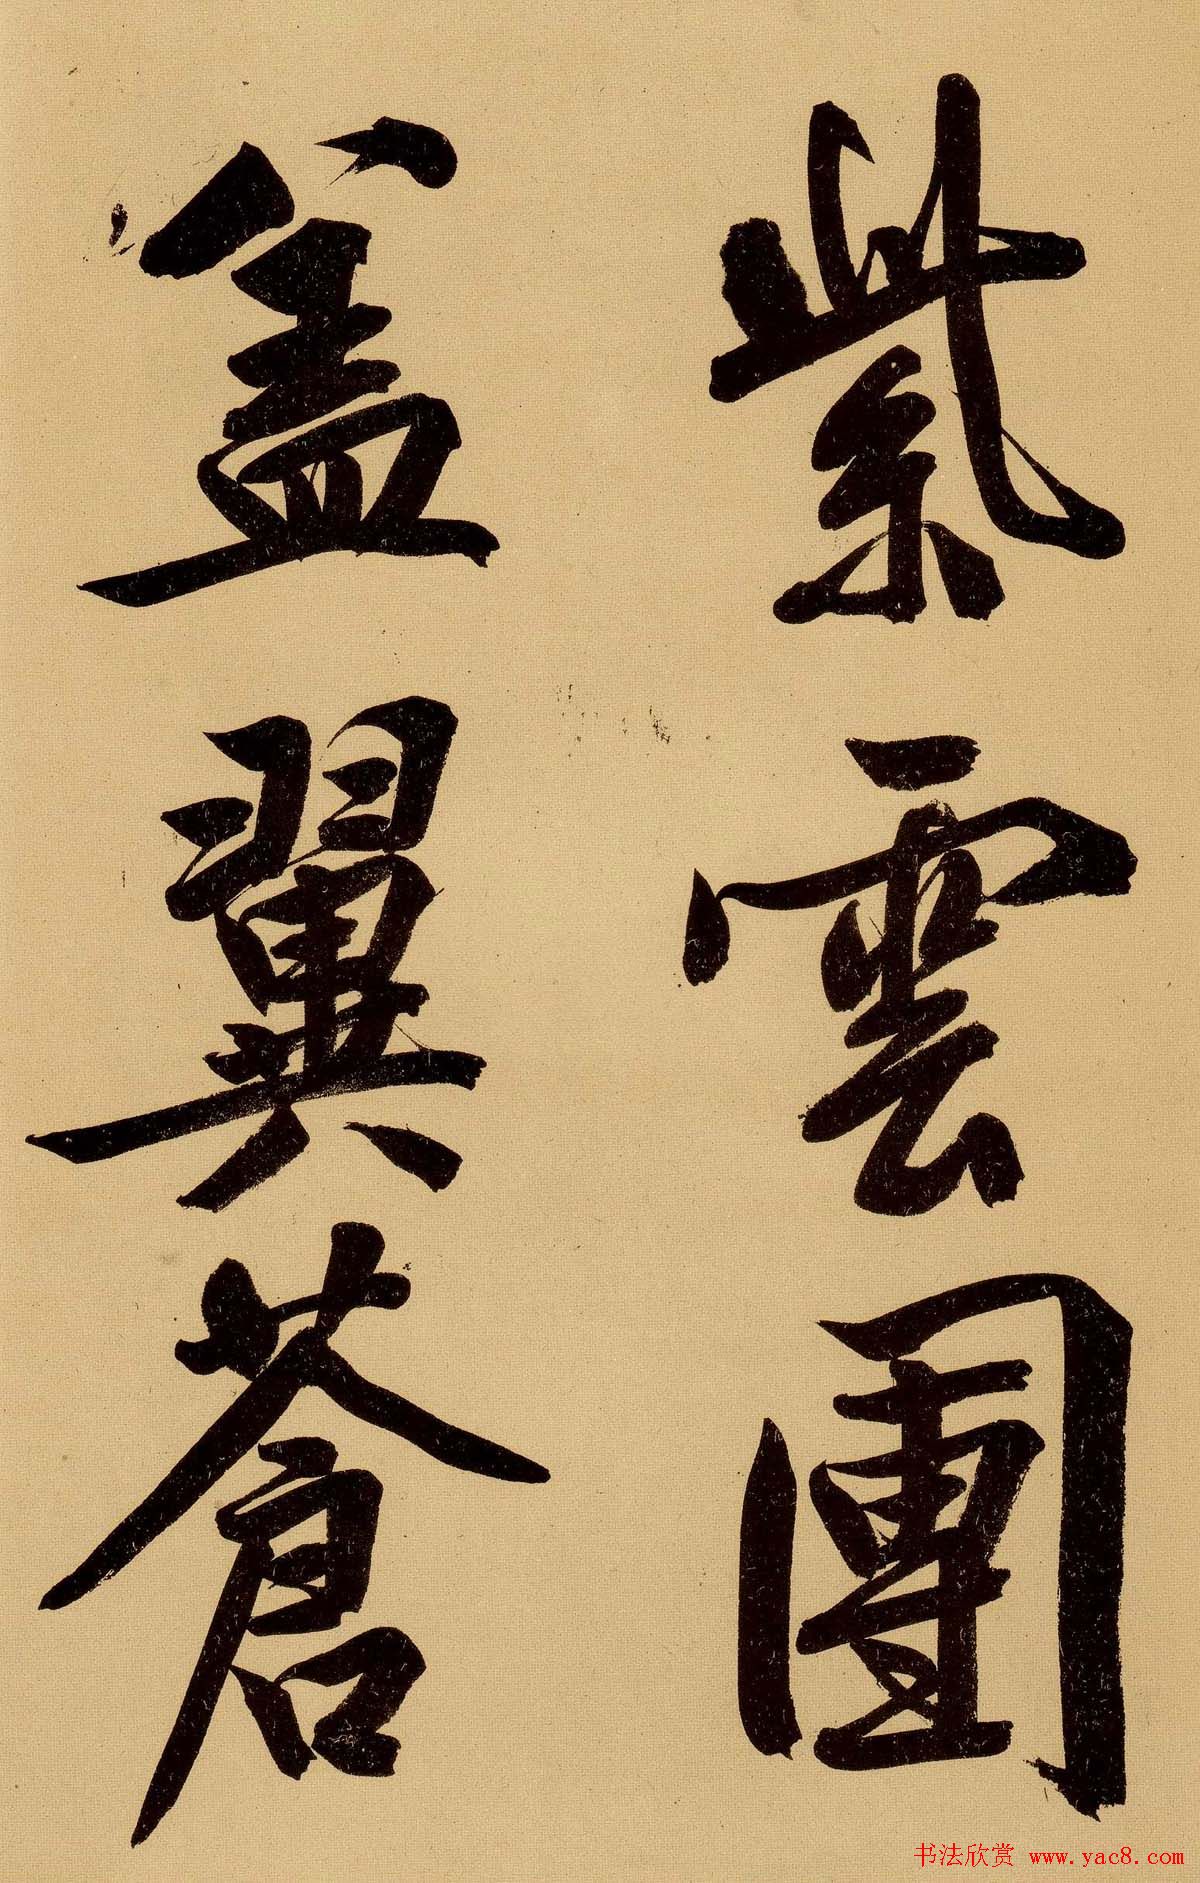 紫雲團
盖翼蒼
书法欣赏 www.yac8.com